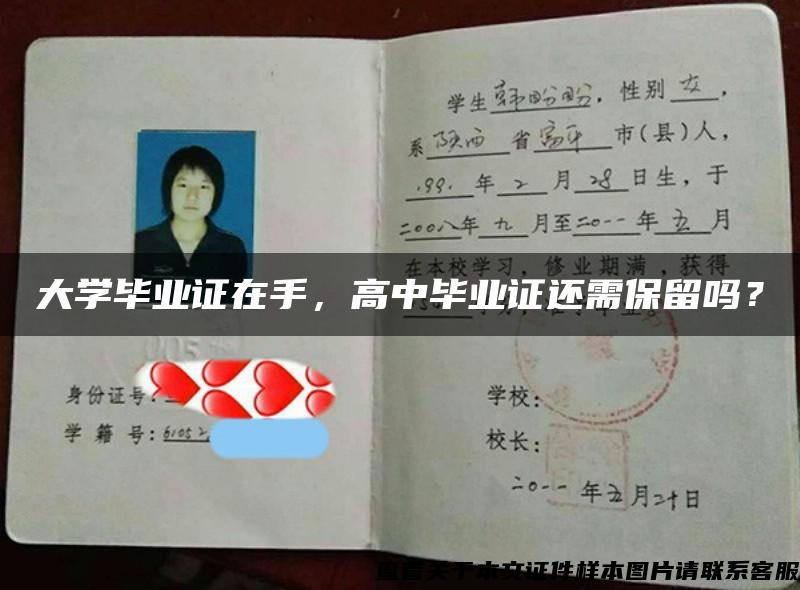 学生韩盼盼，性别女，
系陕西省富平市(县)人，
1991年2月28日生，于
二00八年九月至二0一一年五月
在本校学习，修业期满，获得
大学毕业证在手，高中毕业证还需保留吗？
005
身份证号：
学籍号：61052
学校：
校长：
二0一一年五月二十日
查看关于本文证件样本图片请联系客服